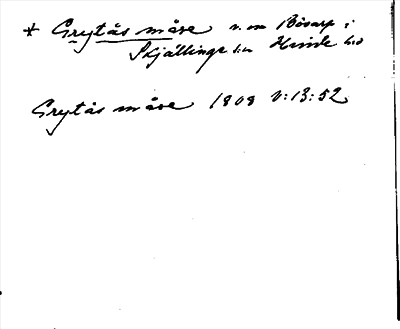 * Grytås måse v. om Bösarp i
Skjällinge s:n Himle h:d
Grytås måse 1808 V:13:52